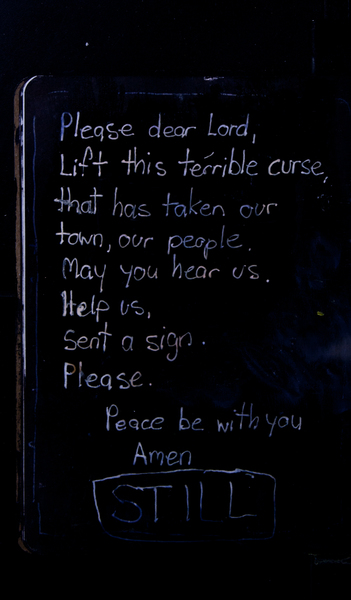 Please dear Lord,
Lift this terrible curse,
that has taken our
town, our people.
May you hear us.
Help us,
Sent a sign.
Please.
Peace be with you
Amen
STILL